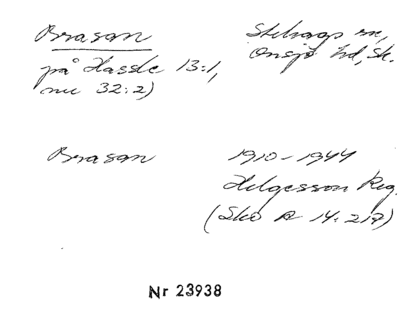 Brasan Stehags sn,
på Hassle 13:1, Onsjö hd, Sk.
nu 32:2)
Brasan 1910-1944
Helgesson Reg.
(Sko R 14:217)
Nr 23938